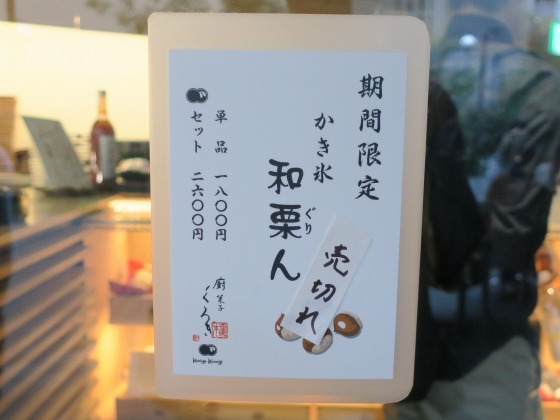 期間限定
かき氷
和栗ん
ぐり
売切れ
単品 一八〇〇円
セット 二六〇〇円
廚菓子
くろぎ